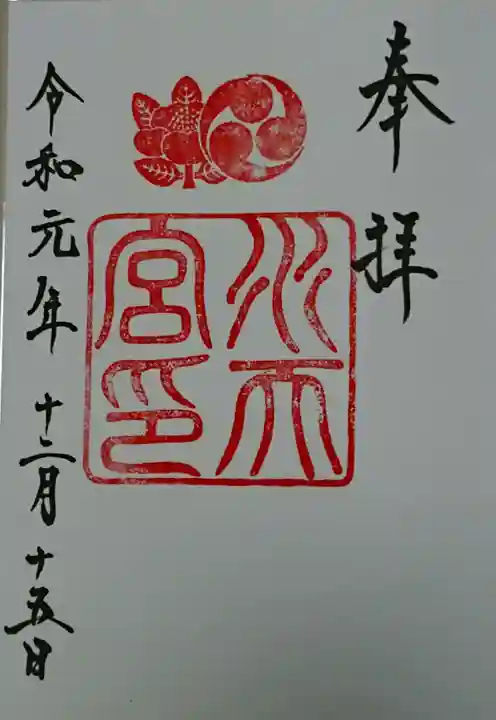 奉拝
水天
宮印
令和元年十二月十五日